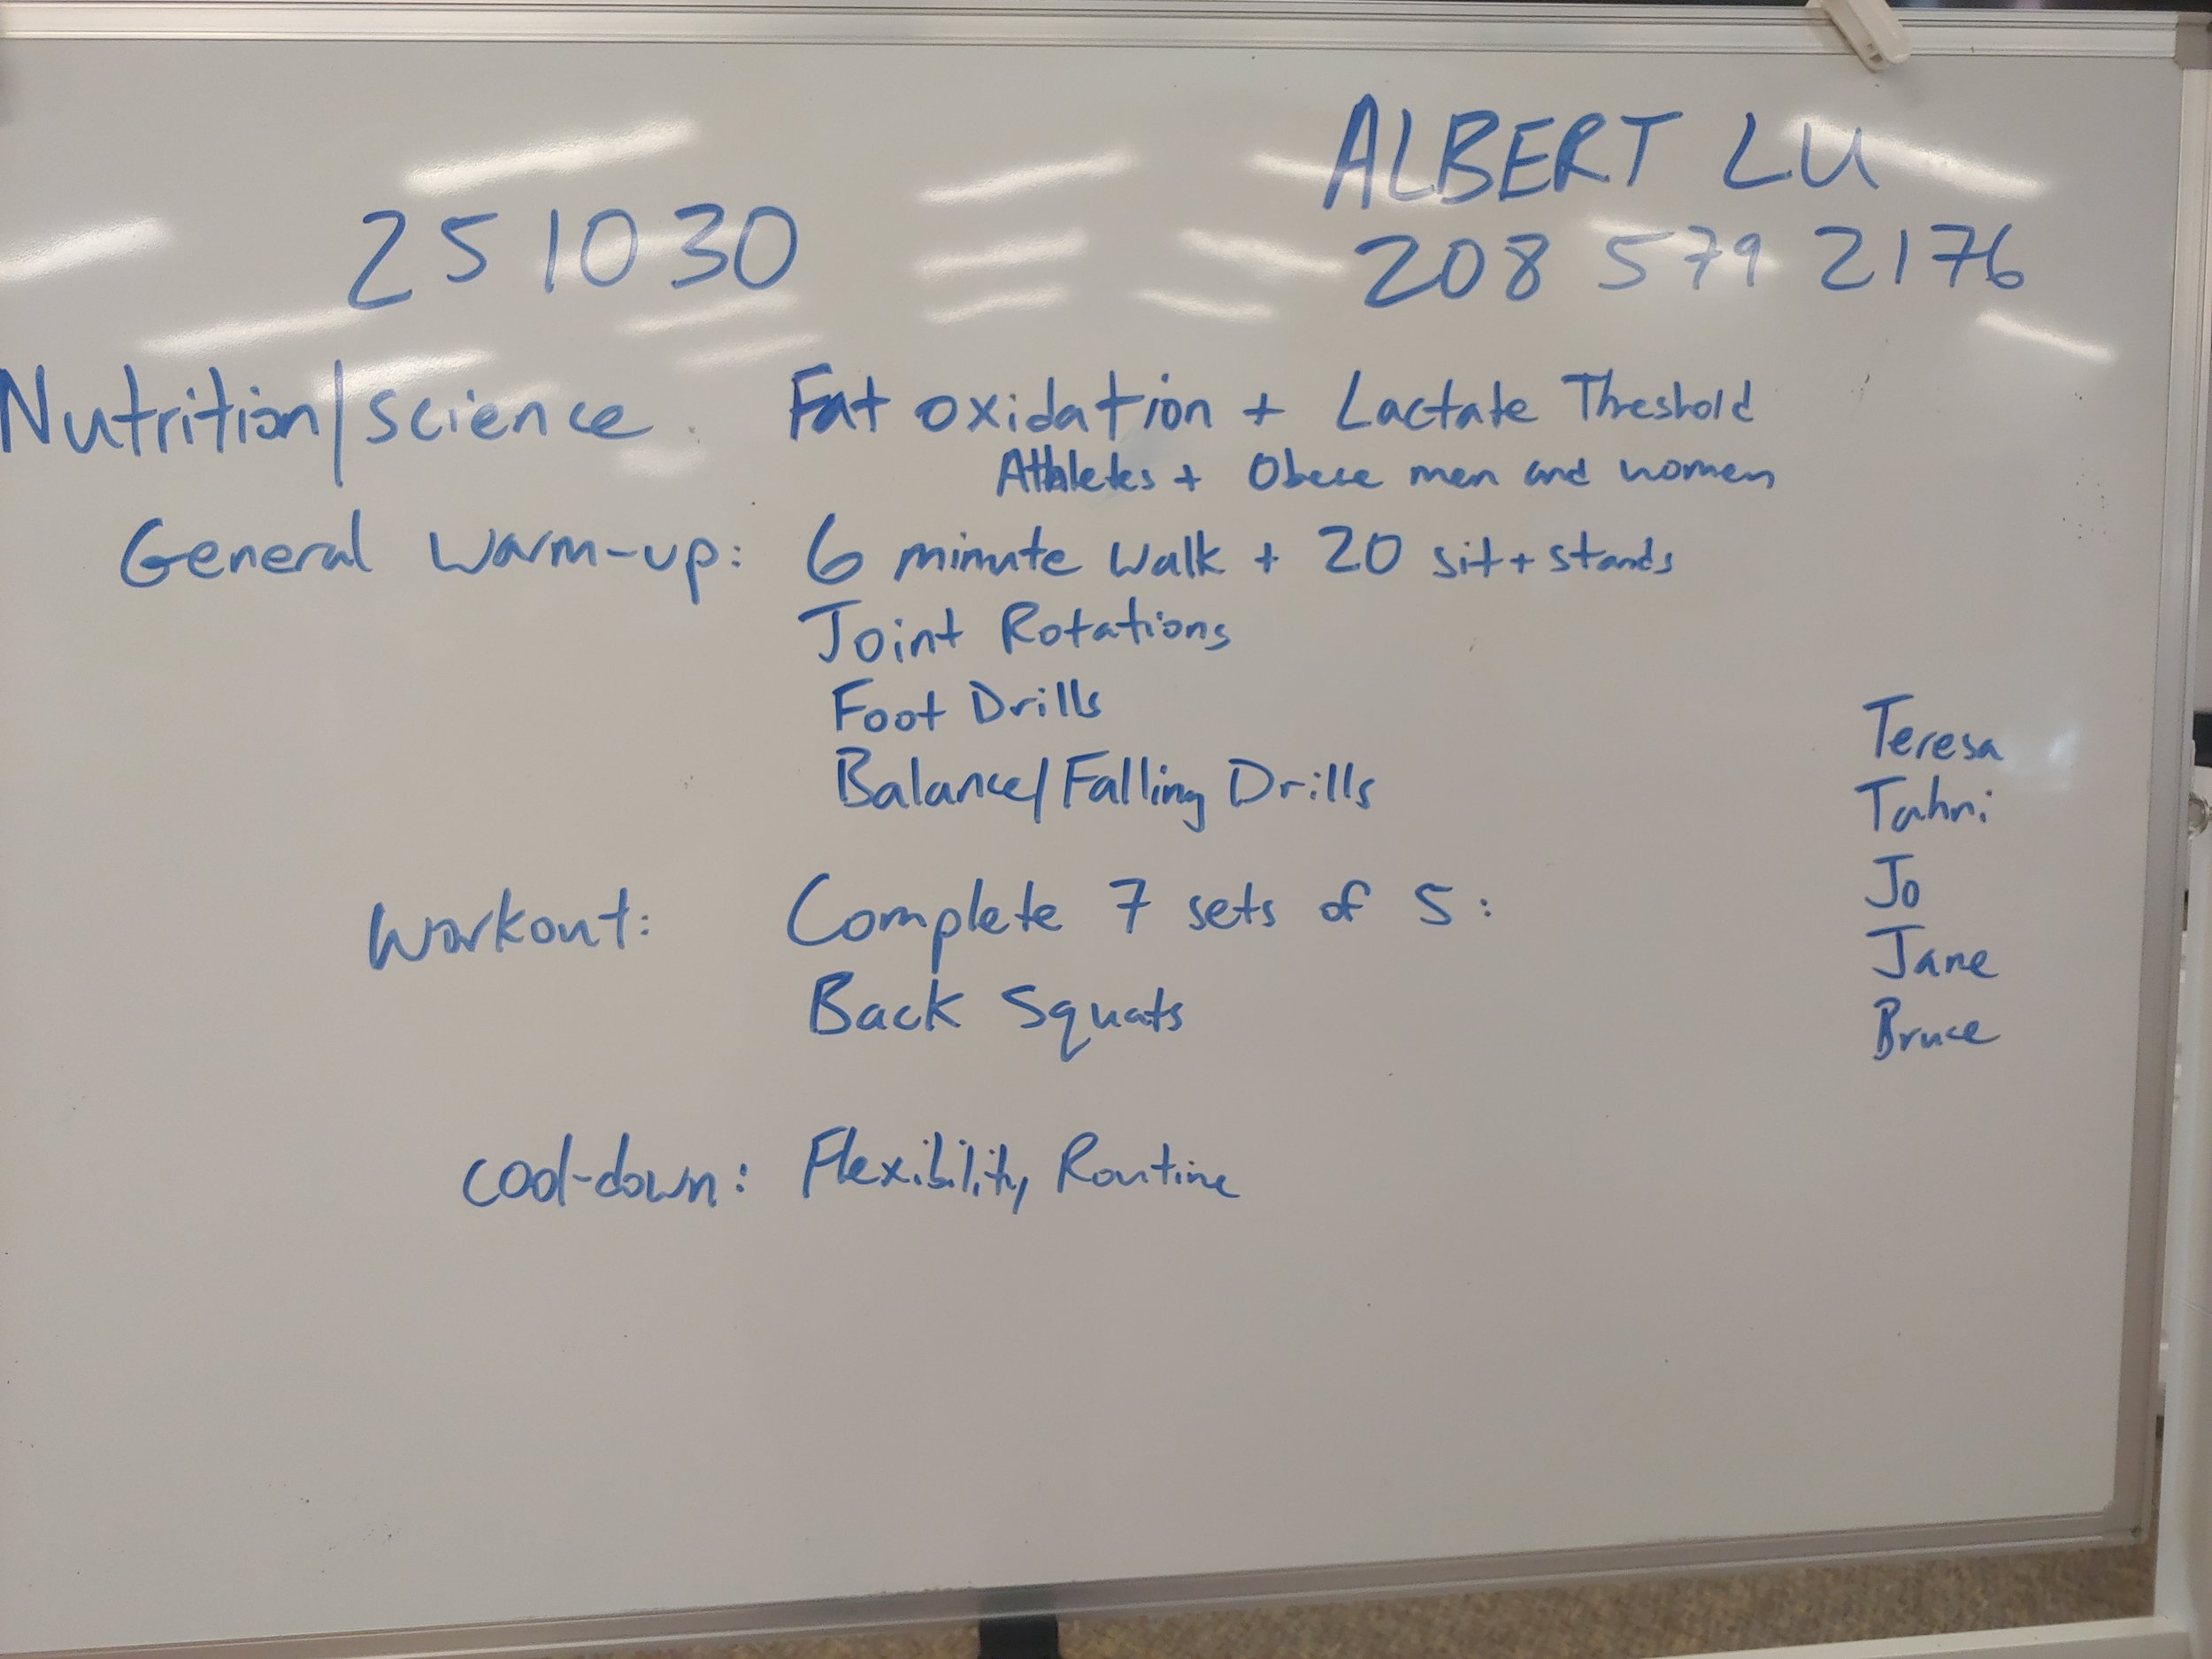 ALBERT LU
251030
208 579 2176
Nutrition/science Fat oxidation + Lactate Threshold
Athletes + Obese men and women
General Warm-up: 6 minute walk + 20 sit + stands
Joint Rotations
Foot Drills
Balance/Falling Drills
Teresa
Tahni
Jo
Jane
Bruce
Workout: Complete 7 sets of 5:
Back Squats
Cool-down: Flexibility Routine